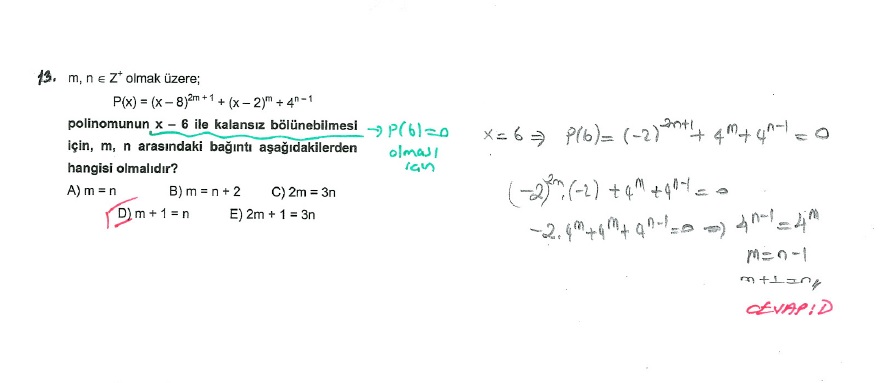 13. m, n ∈ Z⁺ olmak üzere;
P(x) = (x – 8)²ᵐ⁺¹ + (x – 2)ᵐ + 4ⁿ⁻¹
polinomunun x – 6 ile kalansız bölünebilmesi
için, m, n arasındaki bağıntı aşağıdakilerden
hangisi olmalıdır?
A) m = n B) m = n + 2 C) 2m = 3n
D) m + 1 = n E) 2m + 1 = 3n
→ P(6)=0
olması
için
x=6 ⇒ P(6)= (-2)²ᵐ⁺¹ + 4ᵐ + 4ⁿ⁻¹ = 0
(-2)²ᵐ.(-2) + 4ᵐ + 4ⁿ⁻¹ = 0
-2.4ᵐ + 4ᵐ + 4ⁿ⁻¹ = 0 ⇒ 4ⁿ⁻¹ = 4ᵐ
m = n-1
m+1 = n//
CEVAP: D